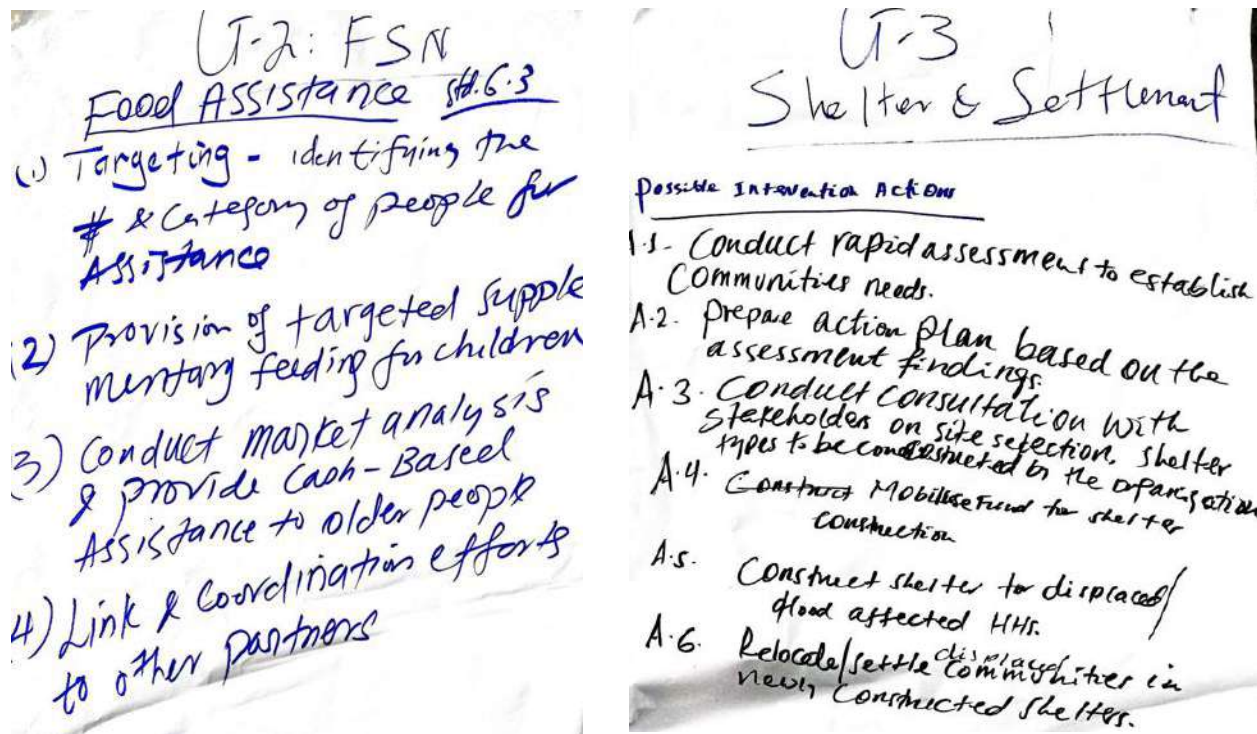 G-2: FSN
Food Assistance std.6.3
(1) Targeting - identifying the
# & Category of people for
Assistance
(2) Provision of targeted supple
mentary feeding for children
(3) Conduct market analysis
& provide Cash-Based
Assistance to older people
(4) Link & Coordination efforts
to other partners
G-3
Shelter & Settlement
Possible Intervention Actions
A.1- Conduct rapid assessment to establish
Communities needs.
A.2. Prepare action plan based on the
assessment findings.
A.3. Conduct consultation with
stakeholders on site selection, shelter
types to be constructed by the organization
A.4. Construct Mobilise Fund for shelter
construction
A.5. Construct shelter to displaced/
flood affected HHs.
A.6. Relocate/settle displaced communities in
newly constructed shelters.